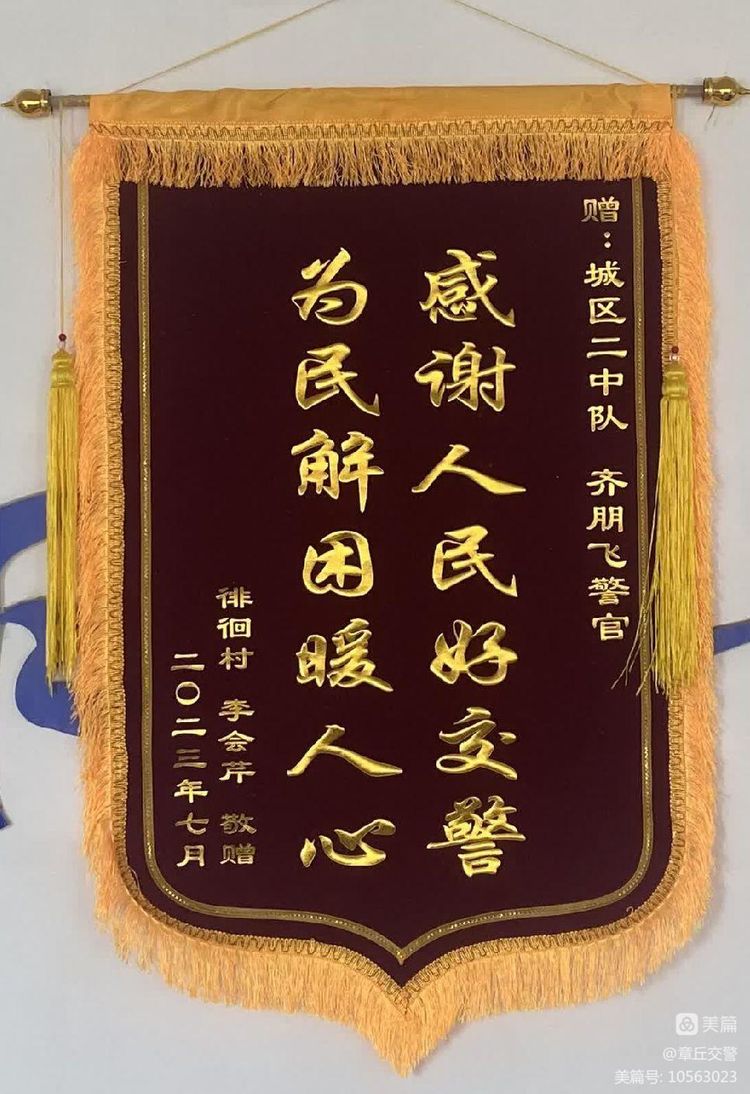 赠：城区二中队 齐朋飞警官
感谢人民好交警
为民解困暖人心
徘徊村 李会芹 敬赠
二〇二三年七月
美篇
@章丘交警
美篇号: 10563023